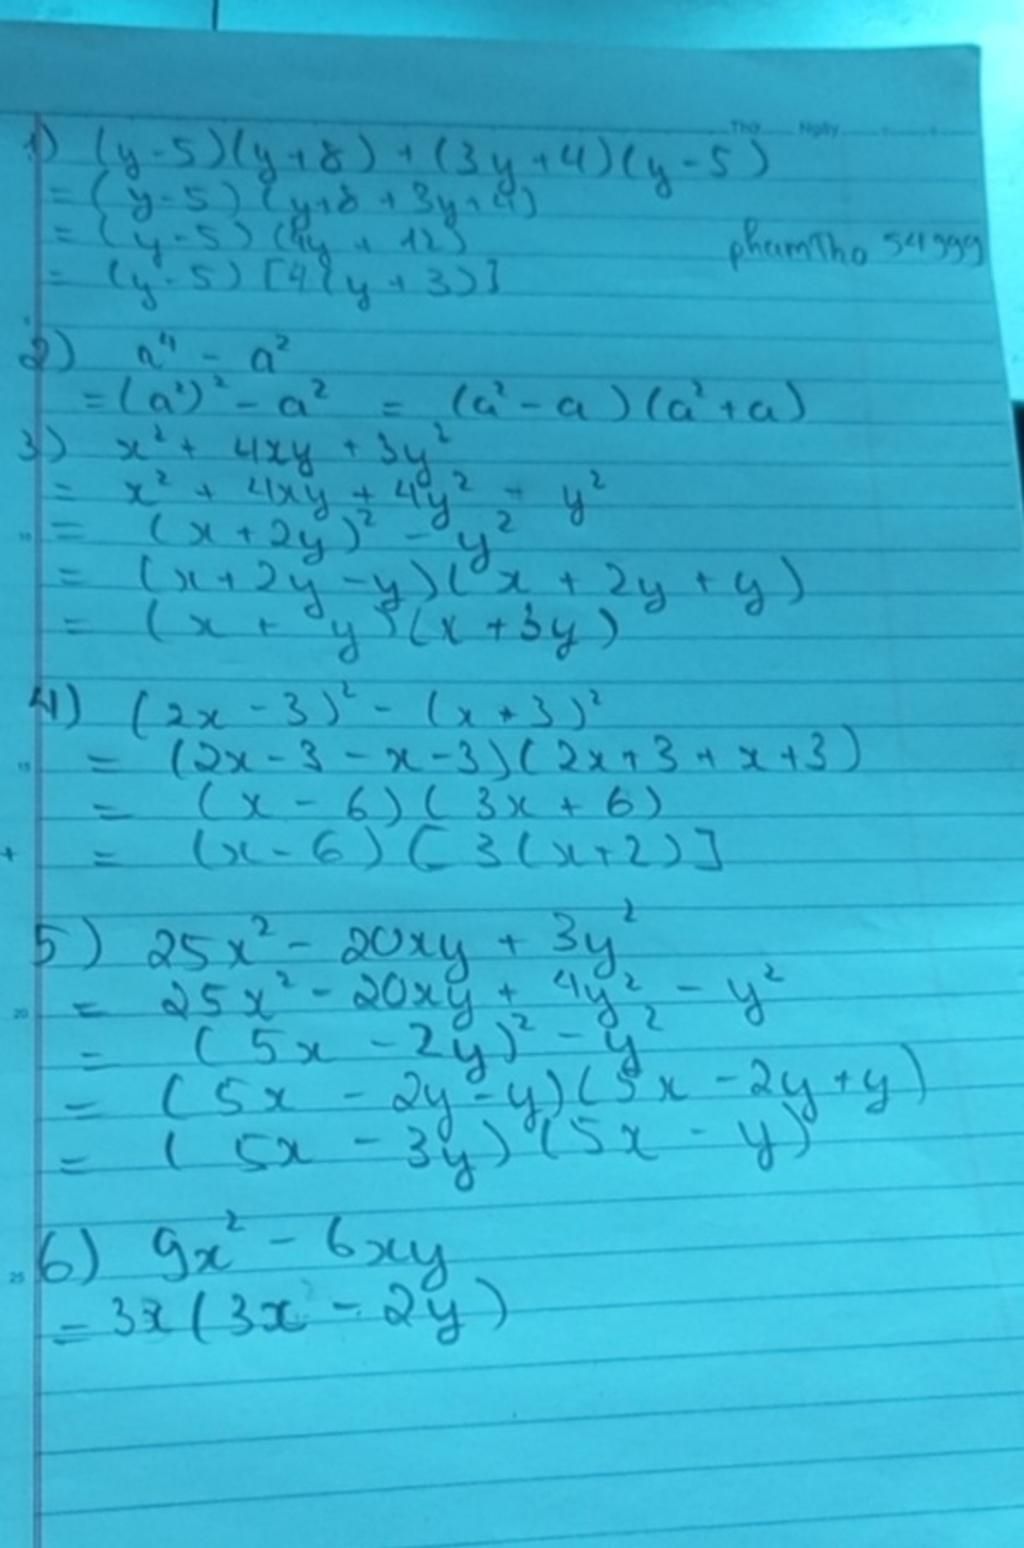 Thứ Ngày
1) (y-5)(y+8) + (3y+4)(y-5)
= (y-5) (y+8 + 3y+4)
= (y-5) (4y + 12)
phamTho 54999
= (y-5) [4(y + 3)]
2) a⁴ - a²
= (a²)² - a² = (a² - a) (a² + a)
3) x² + 4xy + 3y²
= x² + 4xy + 4y² - y²
10 = (x + 2y)² - y²
= (x + 2y - y)(x + 2y + y)
= (x + y)(x + 3y)
4) (2x - 3)² - (x + 3)²
15 = (2x - 3 - x - 3)(2x + 3 + x + 3)
= (x - 6) (3x + 6)
+ = (x - 6) [3(x+2)]
5) 25x² - 20xy + 3y²
20 = 25x² - 20xy + 4y² - y²
= (5x - 2y)² - y²
= (5x - 2y - y)(5x - 2y + y)
= (5x - 3y) (5x - y)
25 6) 9x² - 6xy
= 3x (3x - 2y)